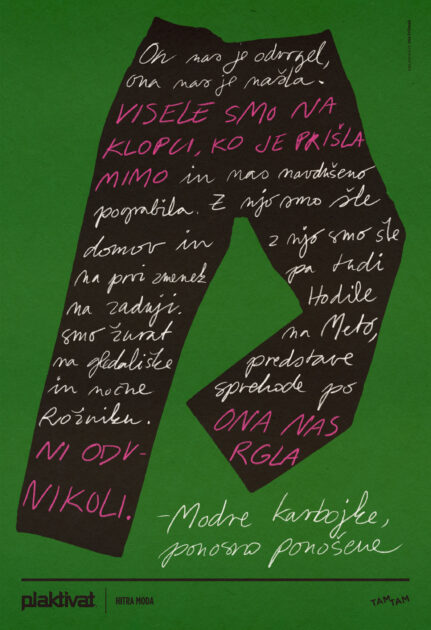 On nas je odvrgel,
ona nas je našla.
VISELE SMO NA
KLOPCI, KO JE PRIŠLA
MIMO in nas navdušeno
pograbila. Z njo smo šle
domov in z njo smo šle
na prvi zmenek pa tudi
na zadnji. Hodile
smo žurat na Meto,
na gledališke predstave
in nočne sprehode po
Rožniku. ONA NAS
NI ODV- RGLA
NIKOLI.
-Modre kavbojke,
ponosno ponošene
plaktivat HITRA MODA TAM TAM